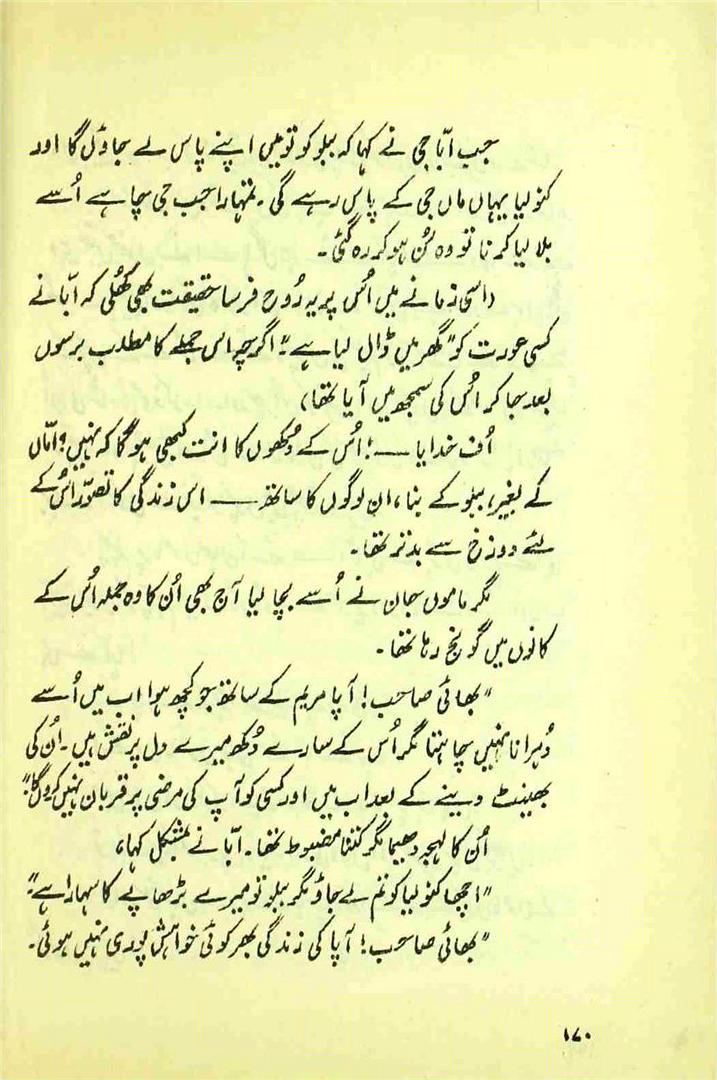 جب ابّا جی نے کہا کہ ببلو کو تو میں اپنے پاس لے جاؤں گا اور
کنولیا یہاں ماں جی کے پاس رہے گی۔ تمہارا جب جی چاہے اُسے
بلا لیا کرنا تو وہ سُن ہو کر رہ گئی۔
(اسی زمانے میں اُس پر یہ رُوح فرسا حقیقت بھی کھُلی کہ ابّا نے
کسی عورت کو "گھر میں ڈال لیا ہے"۔ اگرچہ اس جملے کا مطلب برسوں
بعد جا کر اُس کی سمجھ میں آیا تھا)
اُف خدایا ——! اُس کے دُکھوں کا انت کبھی ہو گا کہ نہیں؟ امّاں
کے بغیر، ببلو کے بنا، ان لوگوں کا ساتھ —— اس زندگی کا تصوّر اُس کے
لئے دوزخ سے بدتر تھا۔
مگر ماموں جان نے اُسے بچا لیا آج بھی اُن کا وہ جملہ اُس کے
کانوں میں گونج رہا تھا۔
"بھائی صاحب! آپا مریم کے ساتھ جو کچھ ہوا اب میں اُسے
دُہرانا نہیں چاہتا مگر اُس کے سارے دُکھ میرے دل پر نقش ہیں۔ اُن کی
بھینٹ دینے کے بعد اب میں اور کسی کو آپ کی مرضی پر قربان نہیں کروں گا۔"
اُن کا لہجہ دھیما مگر کتنا مضبوط تھا۔ ابّا نے بمشکل کہا،
"اچھا کنولیا کو تم لے جاؤ مگر ببلو تو میرے بڑھاپے کا سہارا ہے۔"
"بھائی صاحب! آپا کی زندگی بھر کوئی خواہش پوری نہیں ہوئی۔
۱۷۰